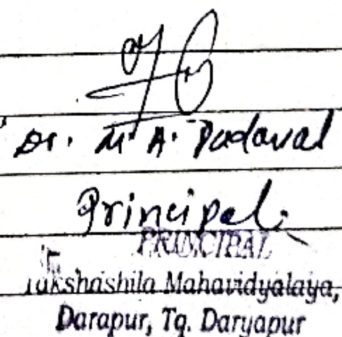 Dr. M. A. Padaval
Principal.
PRINCIPAL
Takshashila Mahavidyalaya,
Darapur, Tq. Daryapur